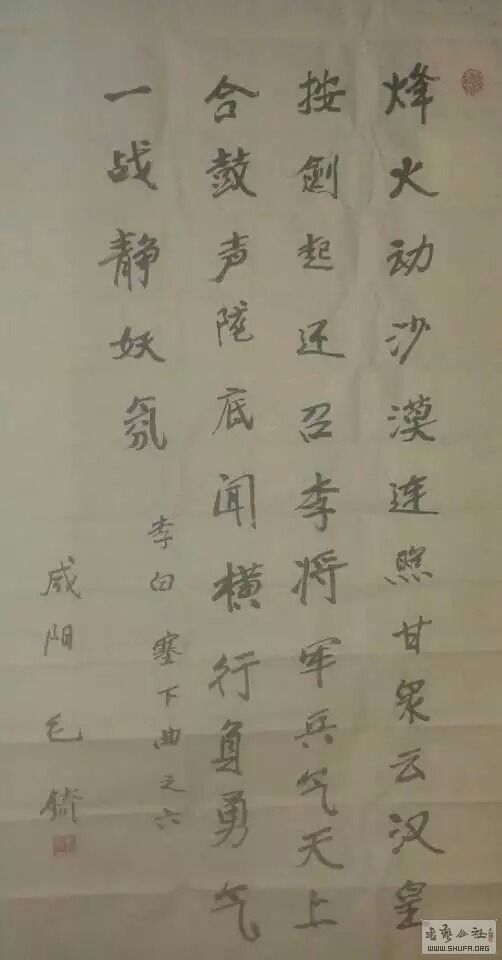 烽火动沙漠连照甘泉云汉皇
按剑起还召李将军兵气天上
合鼓声陇底闻横行负勇气
一战静妖氛
李白塞下曲之六
咸阳毛锜
WWW.SHUFA.ORG